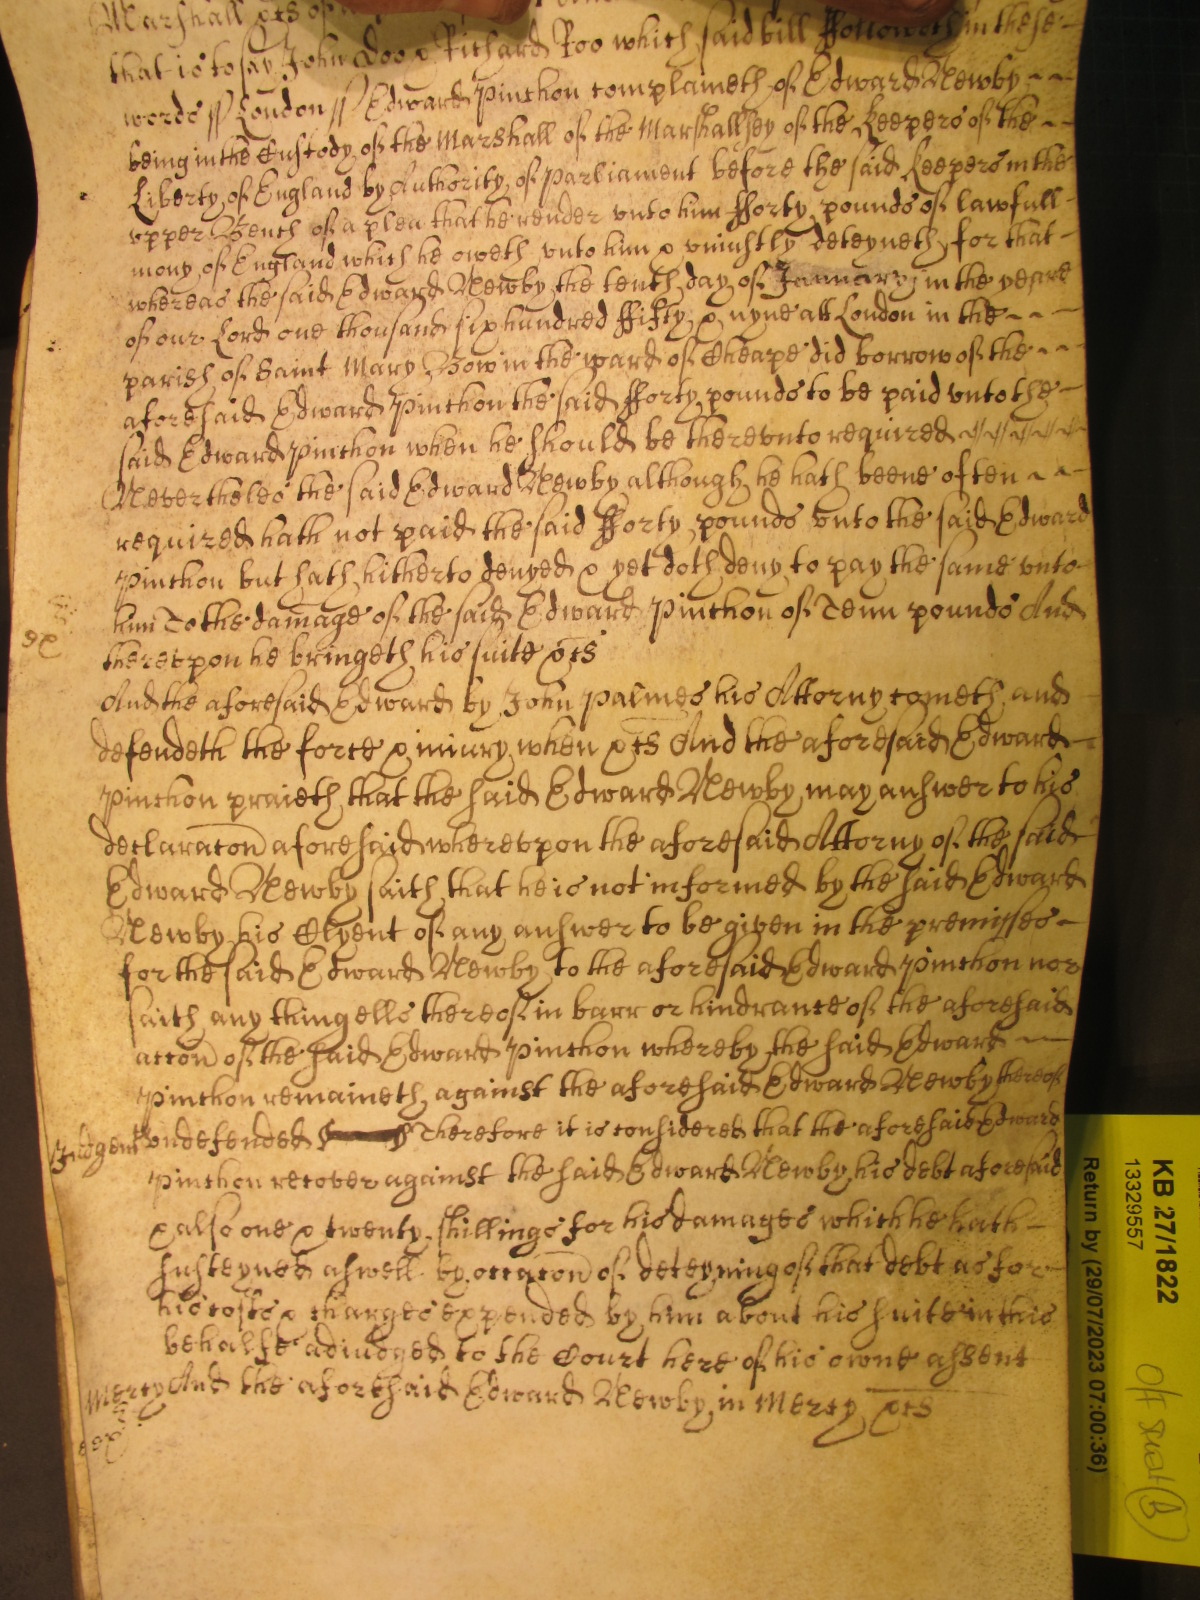 Marshall &cs of
that is to say John Doo & Richard Roo which said bill ffolloweth in these
words // London // Edward Pinchon complaineth of Edward Newby
being in the Custody of the Marshall of the Marshallsey of the Keepers of the
Liberty of England by Authority of Parliament before the said Keepers in the
vpper Bench of a plea that he render vnto him fforty pounds of lawfull
mony of England which he oweth vnto him & vniustly deteyneth for that
whereas the said Edward Newby the tenth day of January in the yeare
of our Lord one thousand six hundred ffifty & nyne att London in the
parish of Saint Mary Bow in the ward of Cheape did borrow of the
aforesaid Edward Pinchon the said fforty pounds to be paid vnto the
said Edward Pinchon when he should be therevnto required
Nevertheles the said Edward Newby although he hath beene often
required hath not paid the said fforty pounds vnto the said Edward
Pinchon but hath hitherto denyed & yet doth deny to pay the same vnto
him To the damage of the said Edward Pinchon of Tenn pounds And
therevpon he bringeth his suite &cs
And the aforesaid Edward by John Palmes his Attorny cometh and
defendeth the force & iniury when &cs And the aforesaid Edward
Pinchon praieth that the said Edward Newby may answer to his
declaracon aforesaid wherevpon the aforesaid Attorny of the said
Edward Newby saith that he is not informed by the said Edward
Newby his Clyent of any answer to be given in the premisses
for the said Edward Newby to the aforesaid Edward Pinchon nor
saith any thing ells thereof in barr or hindrance of the aforesaid
accon of the said Edward Pinchon whereby the said Edward
Pinchon remaineth against the aforesaid Edward Newby thereof
Judgent vndefended Therefore it is considered that the aforesaid Edward
Pinchon recover against the said Edward Newby his debt aforesaid
& also one & twenty shillings for his damages which he hath
susteyned aswell by occacon of deteyning of that debt as for
his costs & charges expended by him about his suite in this
behalfe adiudged to the Court here of his owne assent
Mercy And the aforesaid Edward Newby in Mercy &cs
KB 27/1822
13329557
Return by (29/07/2023 07:00:36)